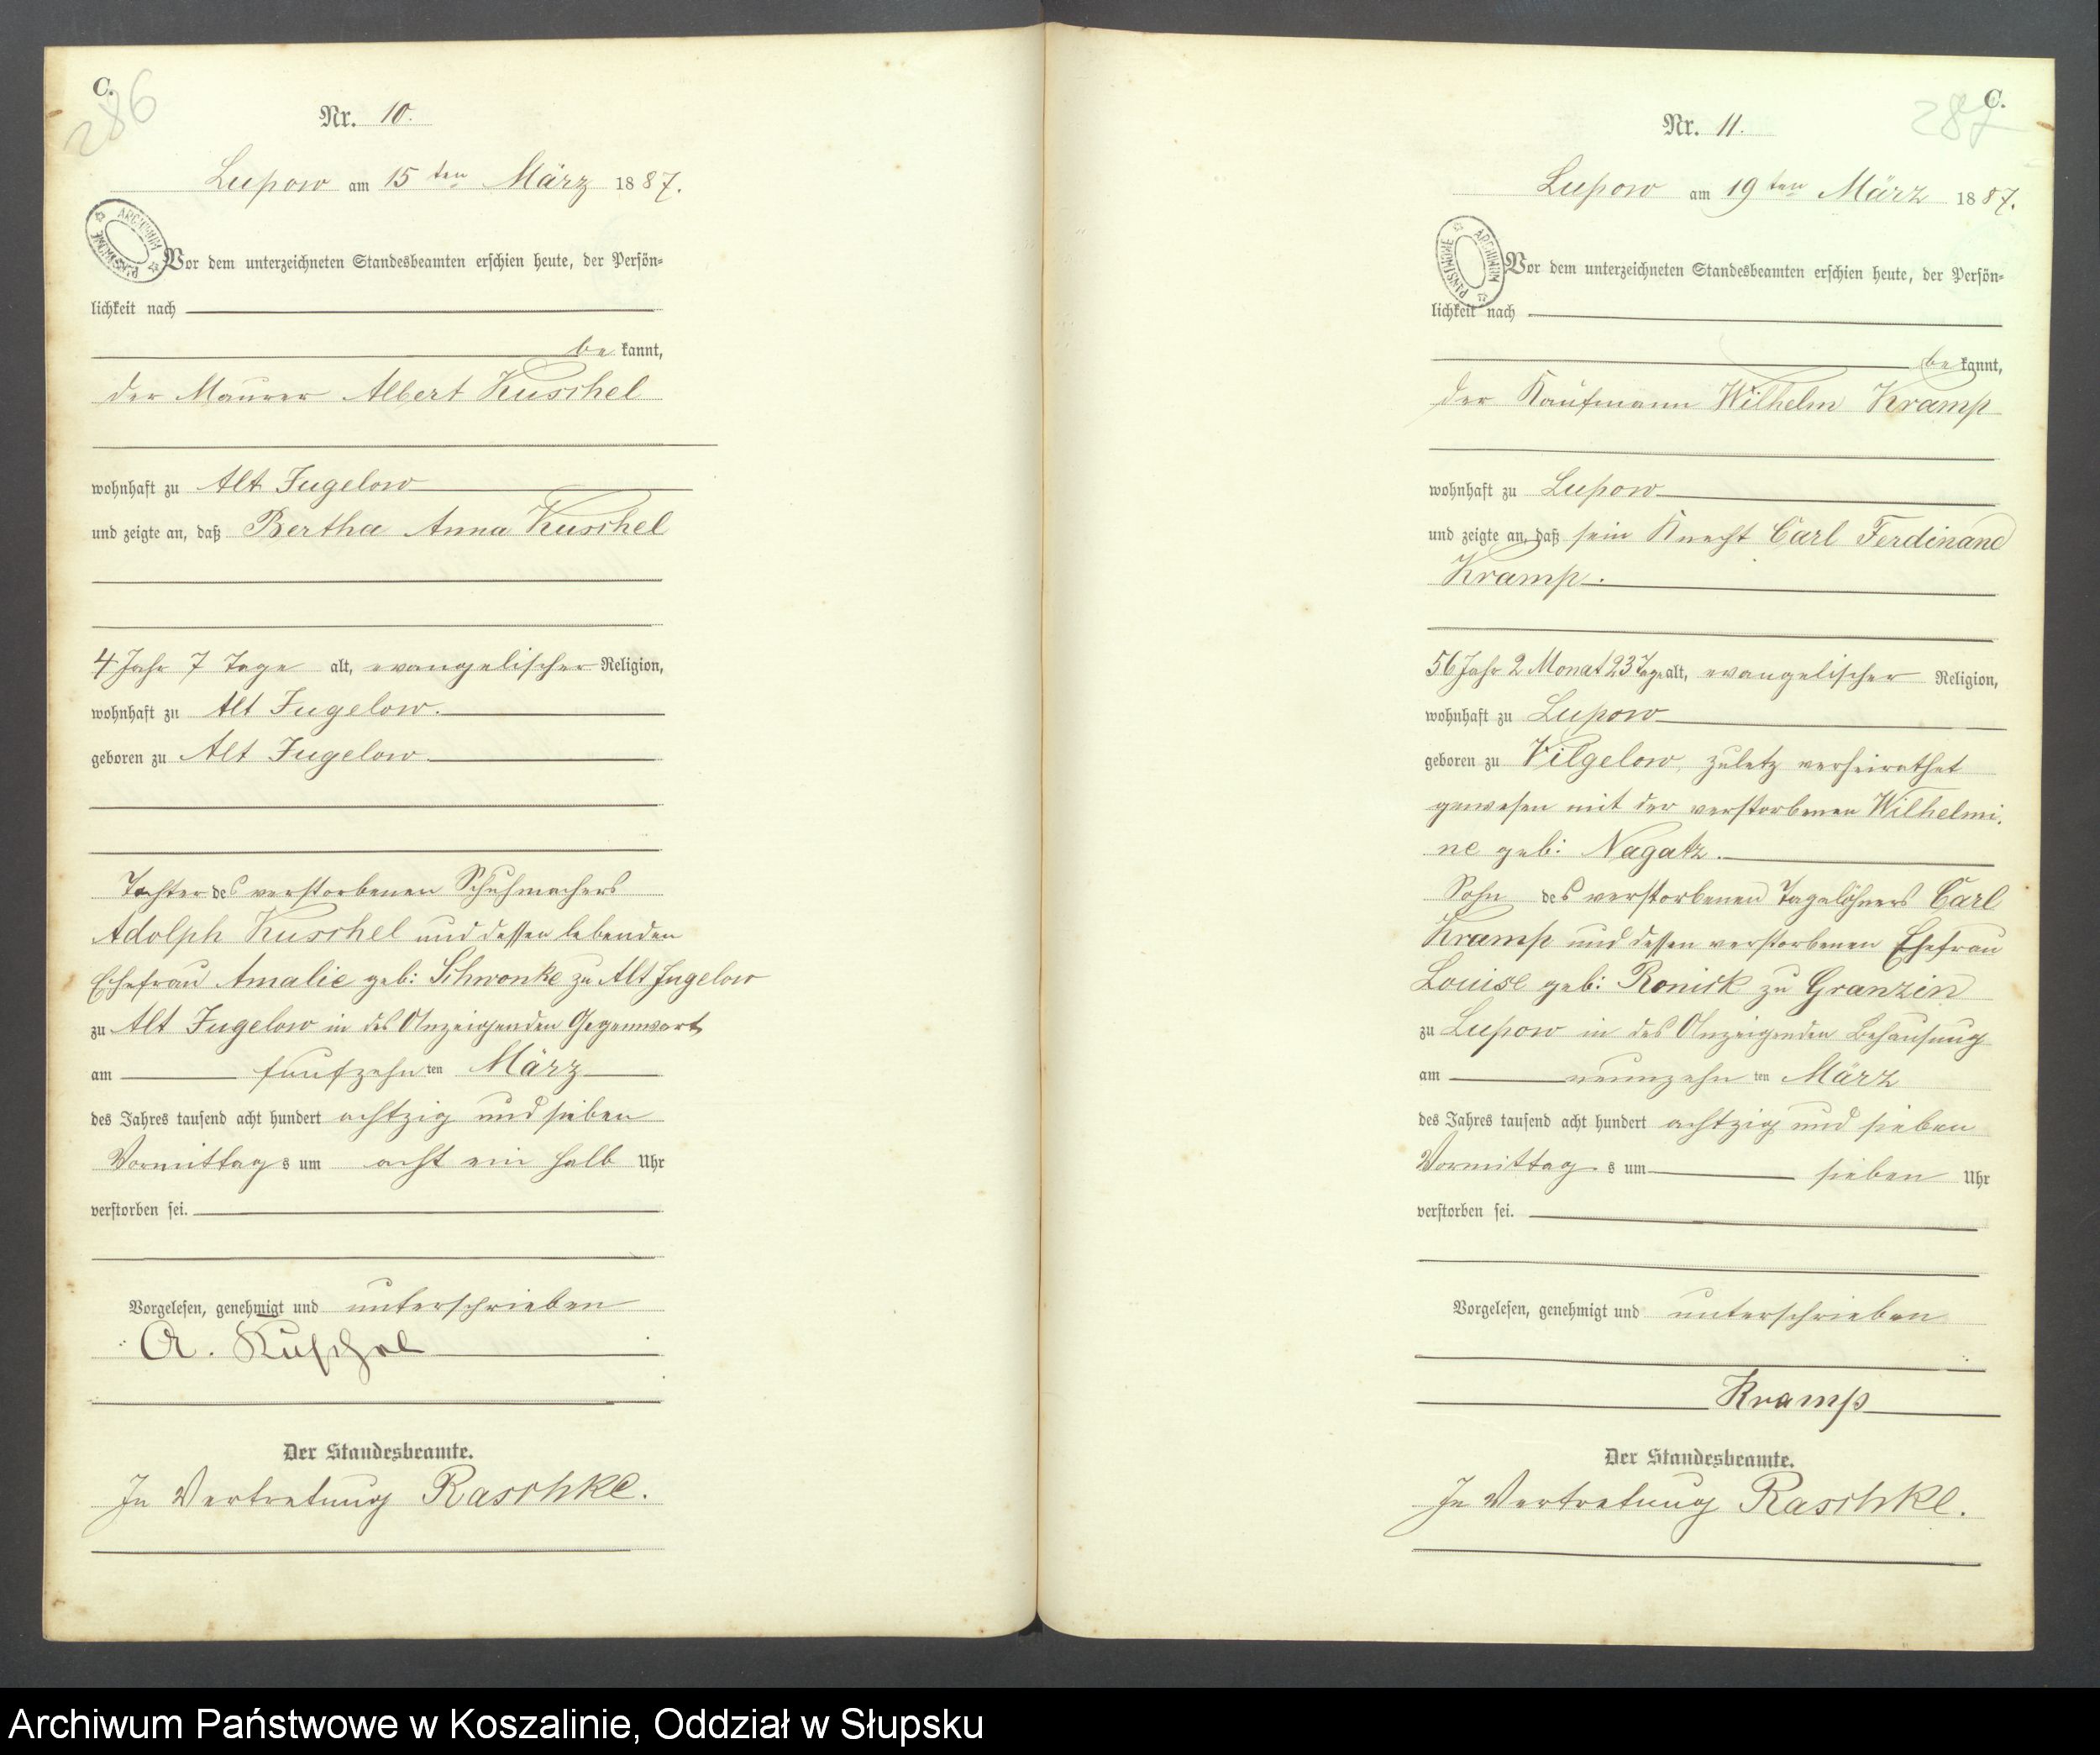 C.
286
Nr. 10.
Lupow am 15ten März 1887.
ARCHIWUM PAŃSTWOWE
Vor dem unterzeichneten Standesbeamten erschien heute, der Persön-
lichkeit nach
be kannt,
der Maurer Albert Kuschel
wohnhaft zu Alt Jugelow
und zeigte an, daß Bertha Anna Kuschel
4 Jahr 7 Tage alt, evangelischer Religion,
wohnhaft zu Alt Jugelow.
geboren zu Alt Jugelow
Tochter des verstorbenen Schuhmachers
Adolph Kuschel und dessen lebenden
Ehefrau Amalie geb: Schwonke zu Alt Jugelow
zu Alt Jugelow in des Anzeigenden Gegenwart
am fünfzehn ten März
des Jahres tausend acht hundert achtzig und sieben
Vormittags um acht ein halb Uhr
verstorben sei.
Vorgelesen, genehmigt und unterschrieben
A. Kuschel
Der Standesbeamte.
In Vertretung Raschke.
C.
287
Nr. 11.
Lupow am 19ten März 1887.
ARCHIWUM PAŃSTWOWE
Vor dem unterzeichneten Standesbeamten erschien heute, der Persön-
lichkeit nach
be kannt,
der Kaufmann Wilhelm Kramp
wohnhaft zu Lupow
und zeigte an, daß sein Knecht Carl Ferdinand
Kramp.
56 Jahr 2 Monat 23 Tage alt, evangelischer Religion,
wohnhaft zu Lupow
geboren zu Vilgelow, zuletz verheirathet
gewesen mit der verstorbenen Wilhelmi-
ne geb: Nagatz.
Sohn des verstorbenen Tagelöhners Carl
Kramp und dessen verstorbenen Ehefrau
Louise geb: Ronick zu Granzin
zu Lupow in des Anzeigenden Behausung
am neunzehn ten März
des Jahres tausend acht hundert achtzig und sieben
Vormittags um sieben Uhr
verstorben sei.
Vorgelesen, genehmigt und unterschrieben
Kramp
Der Standesbeamte.
In Vertretung Raschke.
Archiwum Państwowe w Koszalinie, Oddział w Słupsku